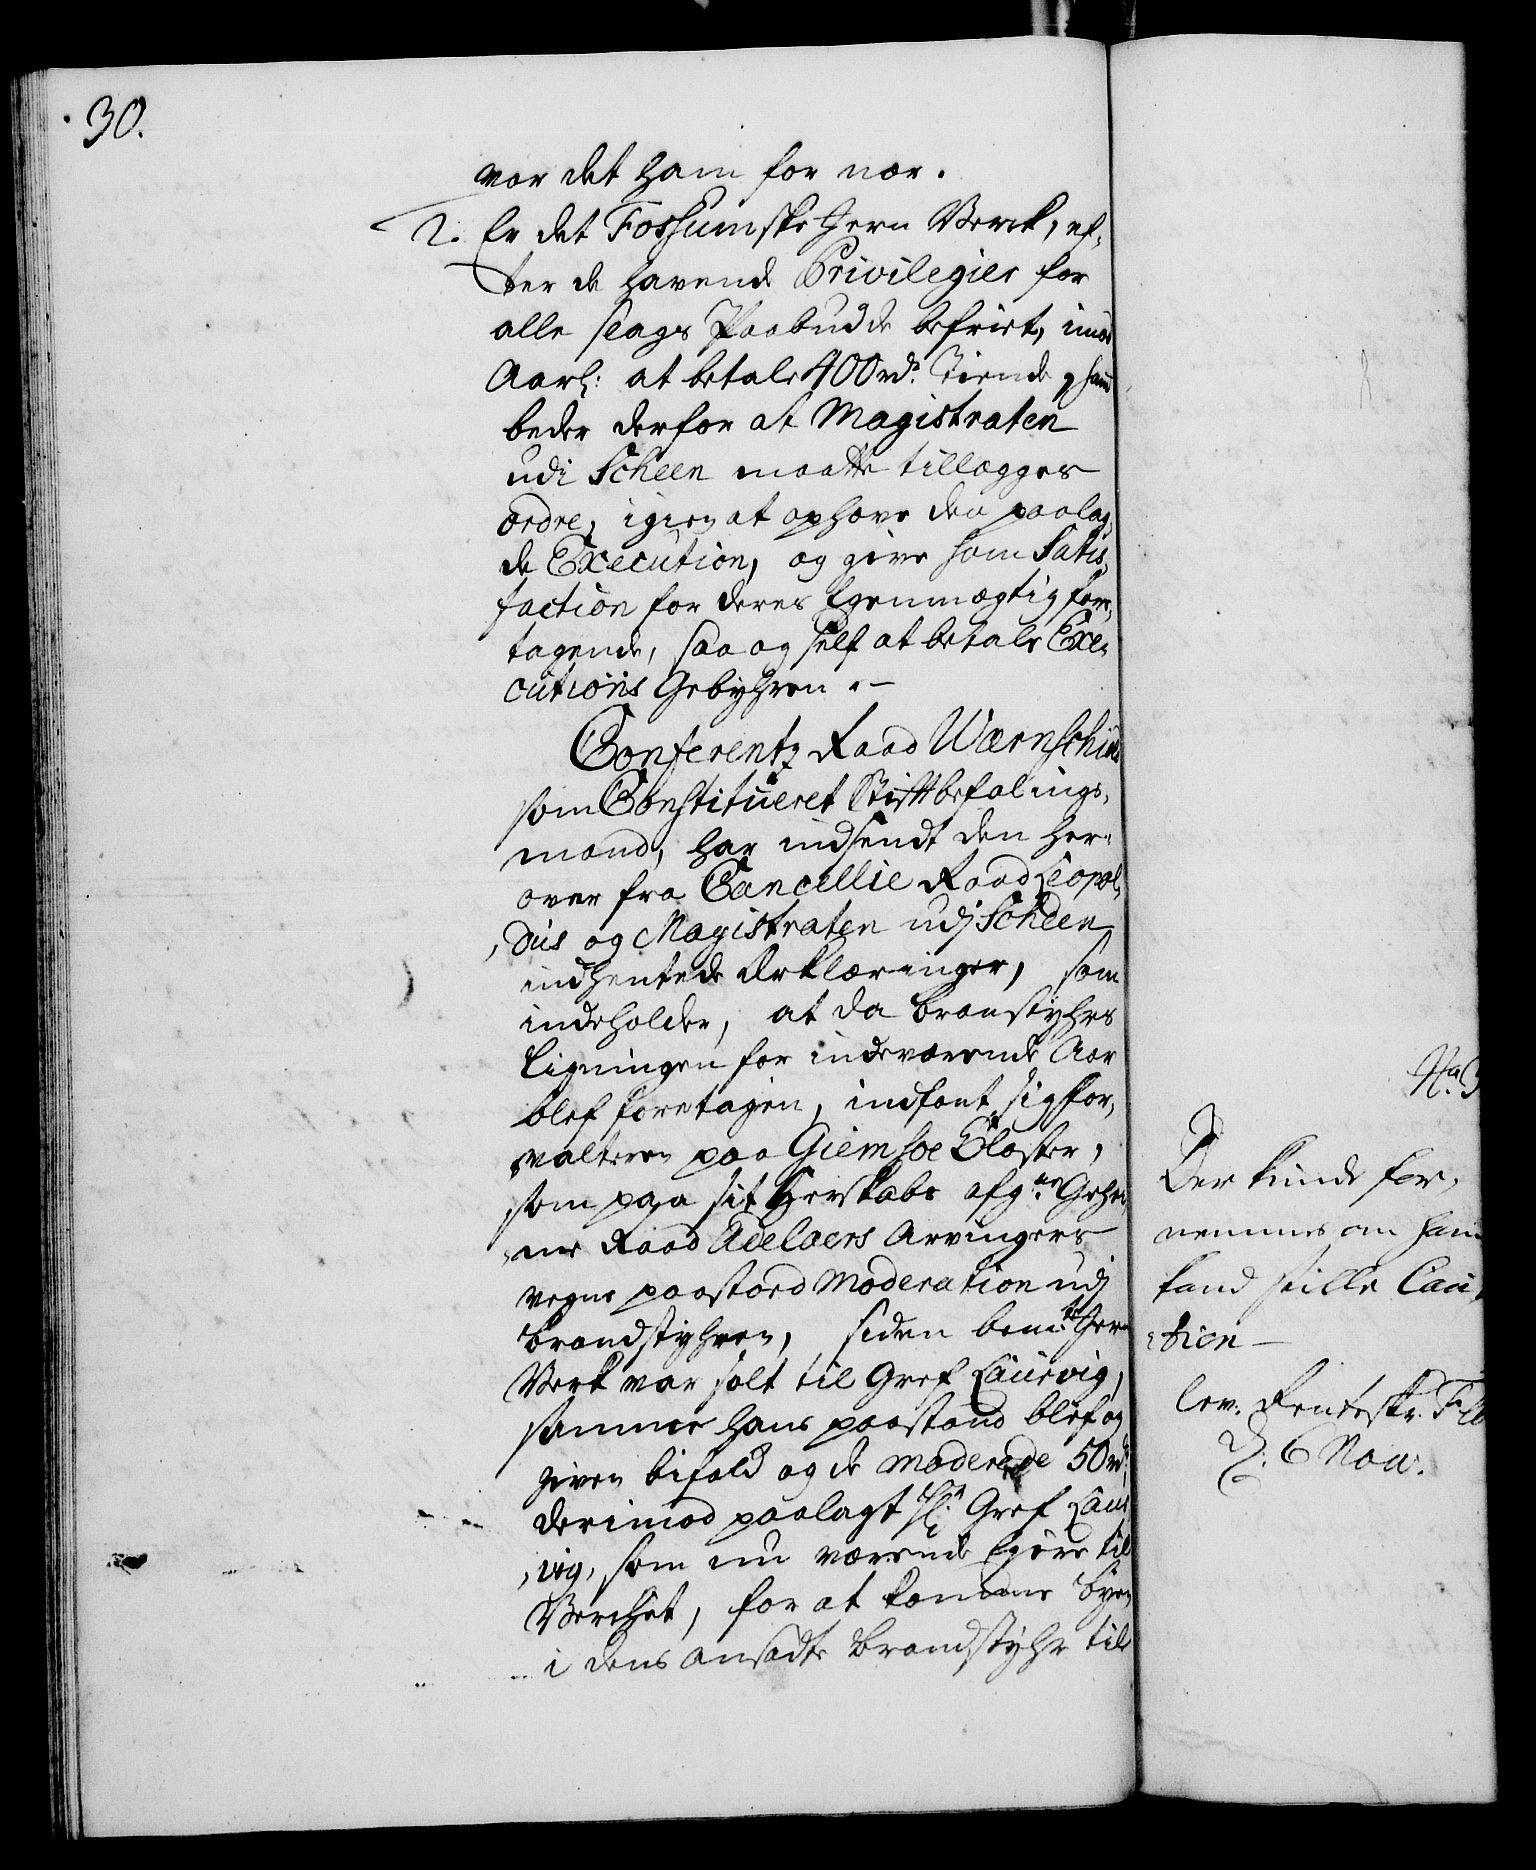 30.
var det ham for nær.
2. Er det Fossumske Jern Verck, ef,
ter de havende Privilegier for
alle slags Paabudde befriet, imod
Aarl: at betale 400 rdr. Tiende, hand
beder derfor at Magistraten
udi Scheen maatte tillægges
ordre, igien at ophæve den paalag,
de Execution, og give ham Satis,
faction for deres Egenmægtig fore,
tagende, saa og self at betale Exe,
cutions Gebyhren.-
Conferentz Raad Wærnschiold
som Constitueret Stiftbefalings,
mand, har indsendt den her,
over fra Cancellie Raad Leopol,
,dus og Magistraten udj Scheen
indhentede Erklæringer, som
indeholder, at da brandstyhrs
Ligningen for indeværende Aar
blef foretagen, indfant sig for,
valteren paa Giemsøe Closter,
som paa sit Herskabs afg:ne Gehei
,me Raad Adelaers Arvingers
vegne paastoed Moderation udj
brandstyhren, siden bem:te Jern
Verk var solt til Gref Laurvig,
samme hans paastand blef og
given bifald og de modererede 50 rdr.
derimod paalagt Gref Laur
,vig, som nu værende Eyere til
Verchet, for at komme byen
i dens ansadte brandstyhr til
No. 3
Der kunde for,
nemmes om hand
kand stille Cau,
,tion-
lev. Renteskr.
D: 6 Nov.